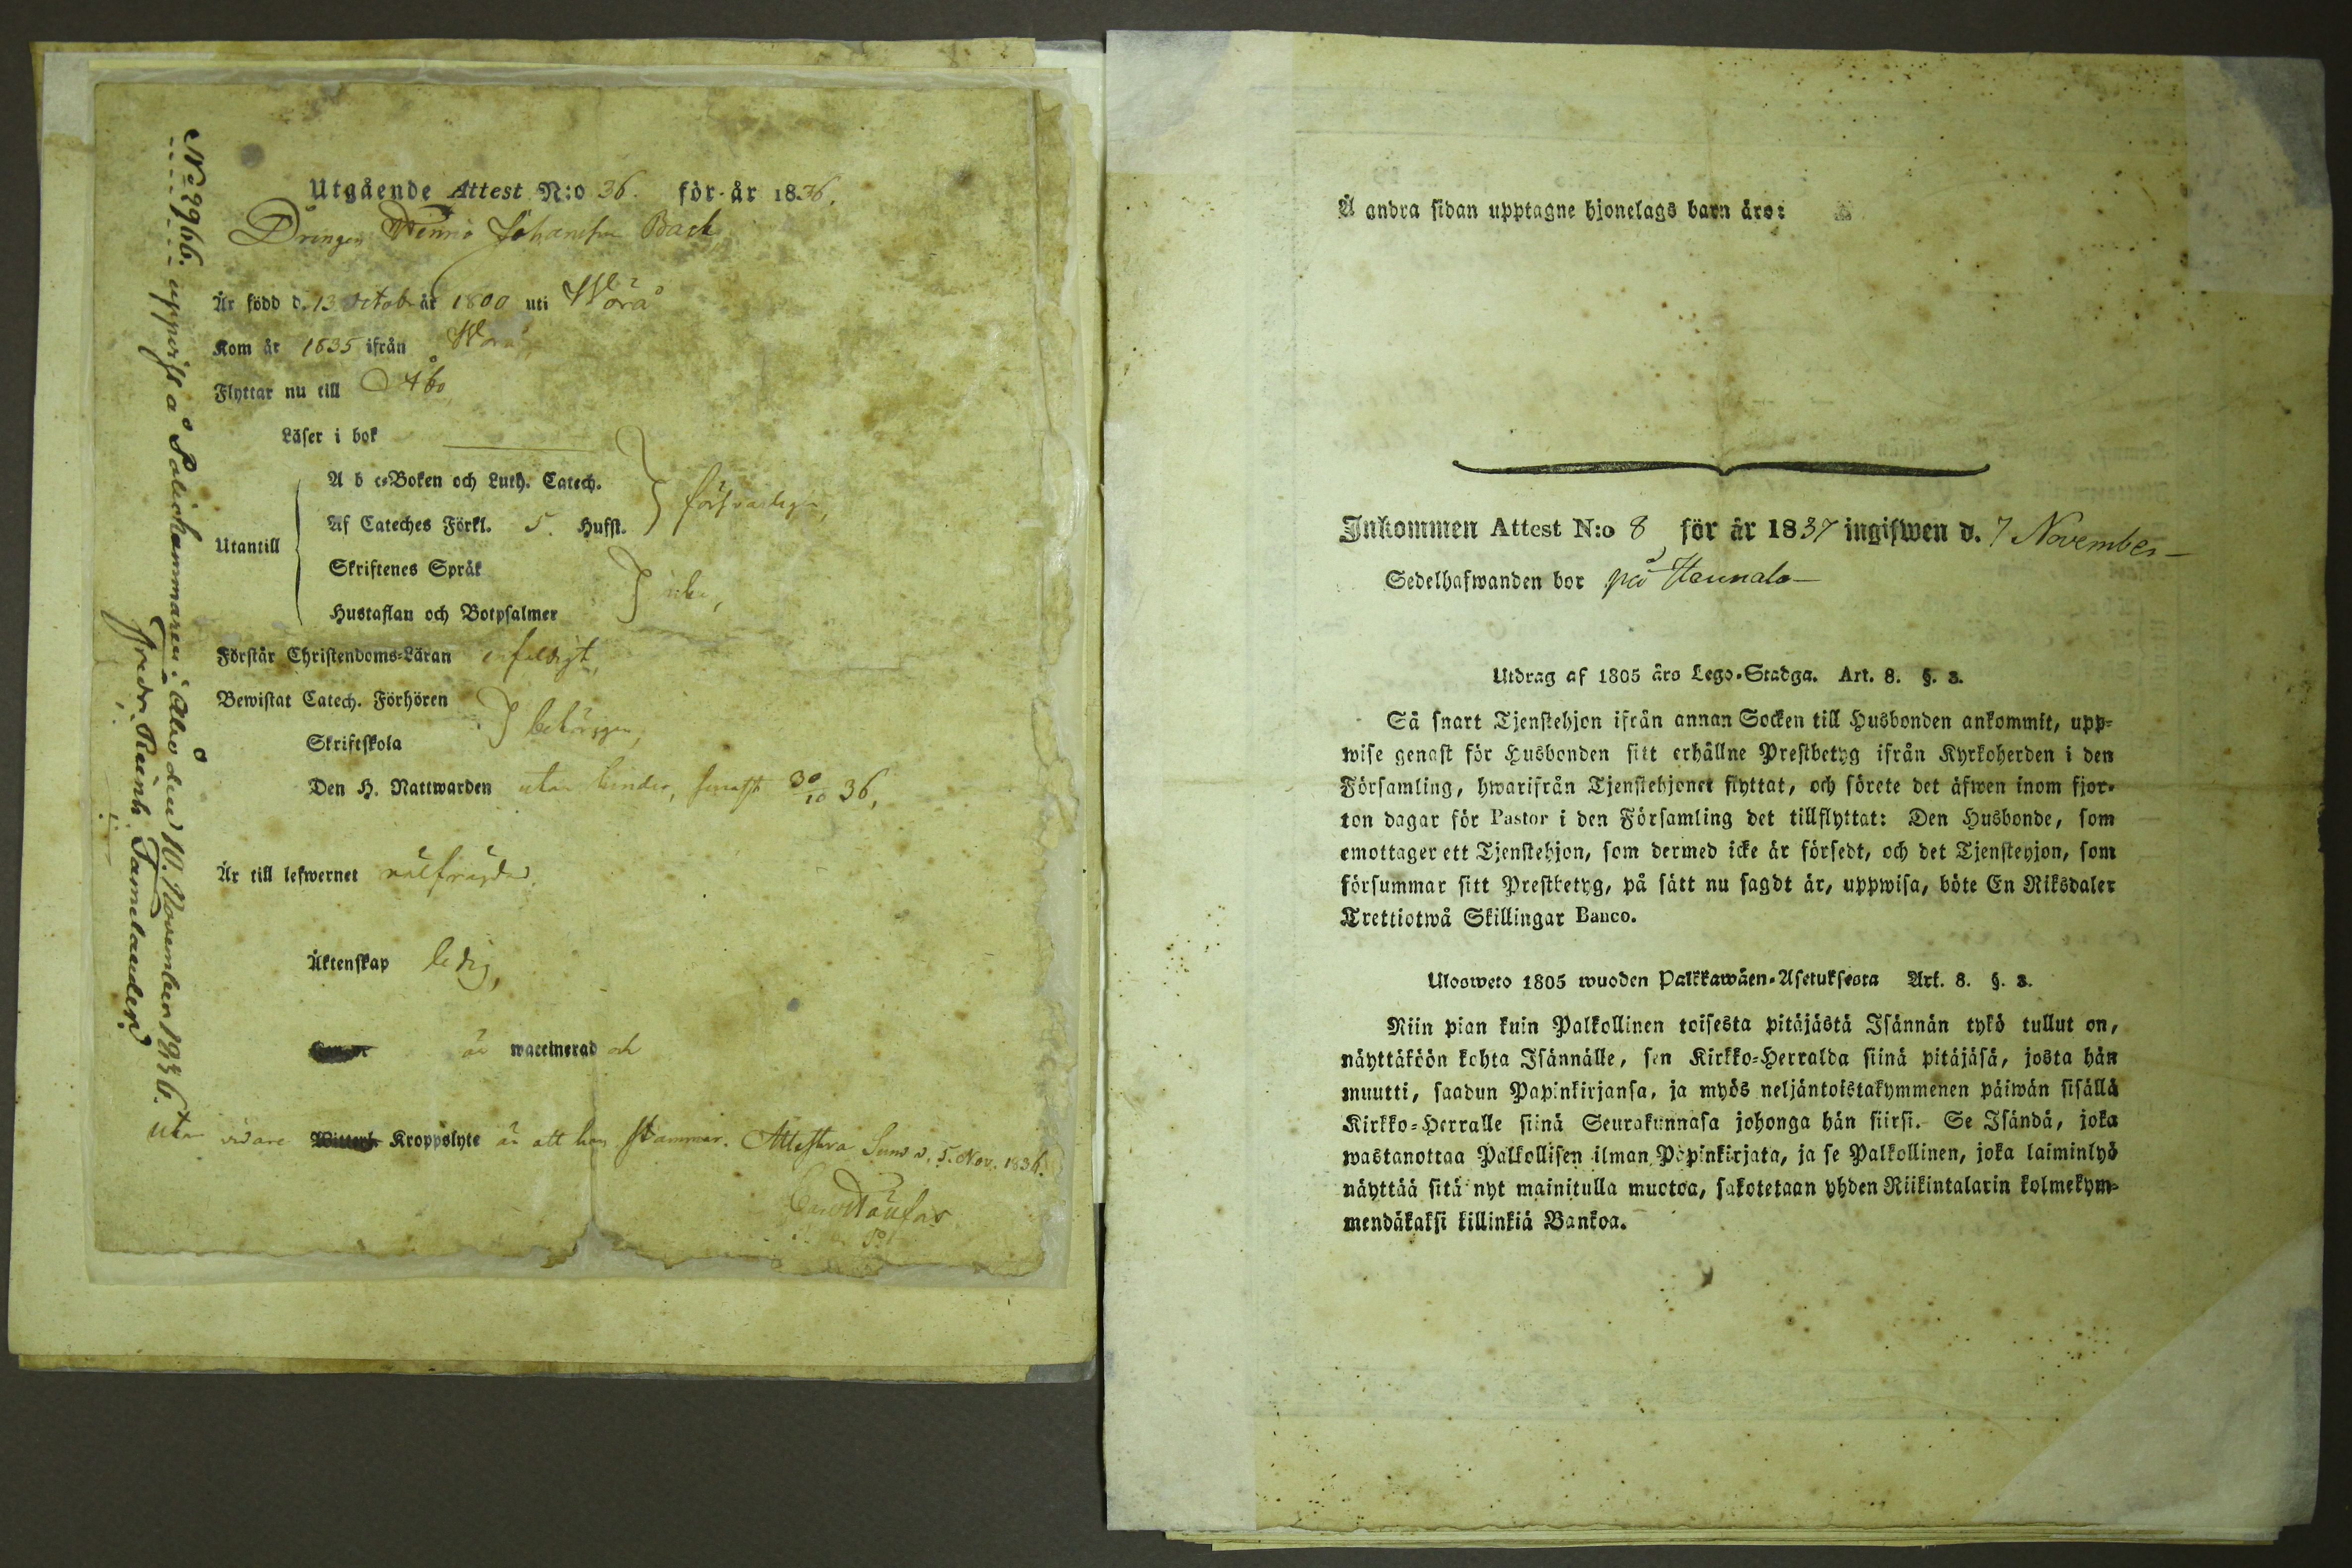 Utgående Attest N:o 36. för år 1836.
Drängen Johansson Back
Är född d. 13 Octob. år 1800 uti Wörå
Kom år 1835 ifrån Wörå,
Flyttar nu till Åbo,
Läser i bok
Utantill
A b c-Boken och Luth. Catech.
Af Cateches Förkl. 5. Hufst.
försvarligen,
Skriftenes Språk
Hustaflan och Botpsalmer
icke,
Förstår Christendoms-Läran enfaldigt,
Bewistat Catech. Förhören
Skriftskola
behörigen,
Den H. Nattwarden utan hinder, senast 30/10 36,
Är till lefwernet välfrägdad.
Äktenskap ledig,
är waccinerad och
utan vidare Kroppslyte än att han stammar. Attestera Sund d. 5. Nov. 1836.
N:o 2966. uppvist å Policekammaren i Åbo den 10. November 1836.
Fredr. Reinh. Tamelander
Å andra sidan upptagne hjonelags barn äro:
Inkommen Attest N:o 8 för år 1837 ingifwen d. 7 November
Sedelhafwanden bor på Haunala
Utdrag af 1805 åro Lego-Stadga. Art. 8. §. 3.
Så snart Tjenstehjon ifrån annan Socken till Husbonden ankommit, upp-
wise genast för Husbonden sitt erhållne Prestbetyg ifrån Kyrkoherden i den
Församling, hwarifrån Tjenstehjonet flyttat, och förete det äfwen inom fjor-
ton dagar för Pastor i den Församling det tillflyttat: Den Husbonde, som
emottager ett Tjenstehjon, som dermed icke är försedt, och det Tjenstehjon, som
försummar sitt Prestbetyg, på sätt nu sagdt är, uppwisa, böte En Riksdaler
Trettiotwå Skillingar Banco.
Ulosweto 1805 wuoden Palkkawäen-Asetuksesta Art. 8. §. 3.
Niin pian kuin Palkollinen toisesta pitäjästä Isännän tykö tullut on,
näyttäköön kohta Isännälle, sen Kirkko-Herralda siinä pitäjäsä, josta hän
muutti, saadun Papinkirjansa, ja myös neljäntoistakymmenen päiwän sisällä
Kirkko-Herralle siinä Seurakunnasa johonga hän siirsi. Se Isändä, joka
wastanottaa Palkollisen ilman Papinkirjata, ja se Palkollinen, joka laiminlyö
näyttää sitä nyt mainitulla muotoa, sakotetaan yhden Riikintalarin kolmekym-
mendäkaksi killinkiä Bankoa.